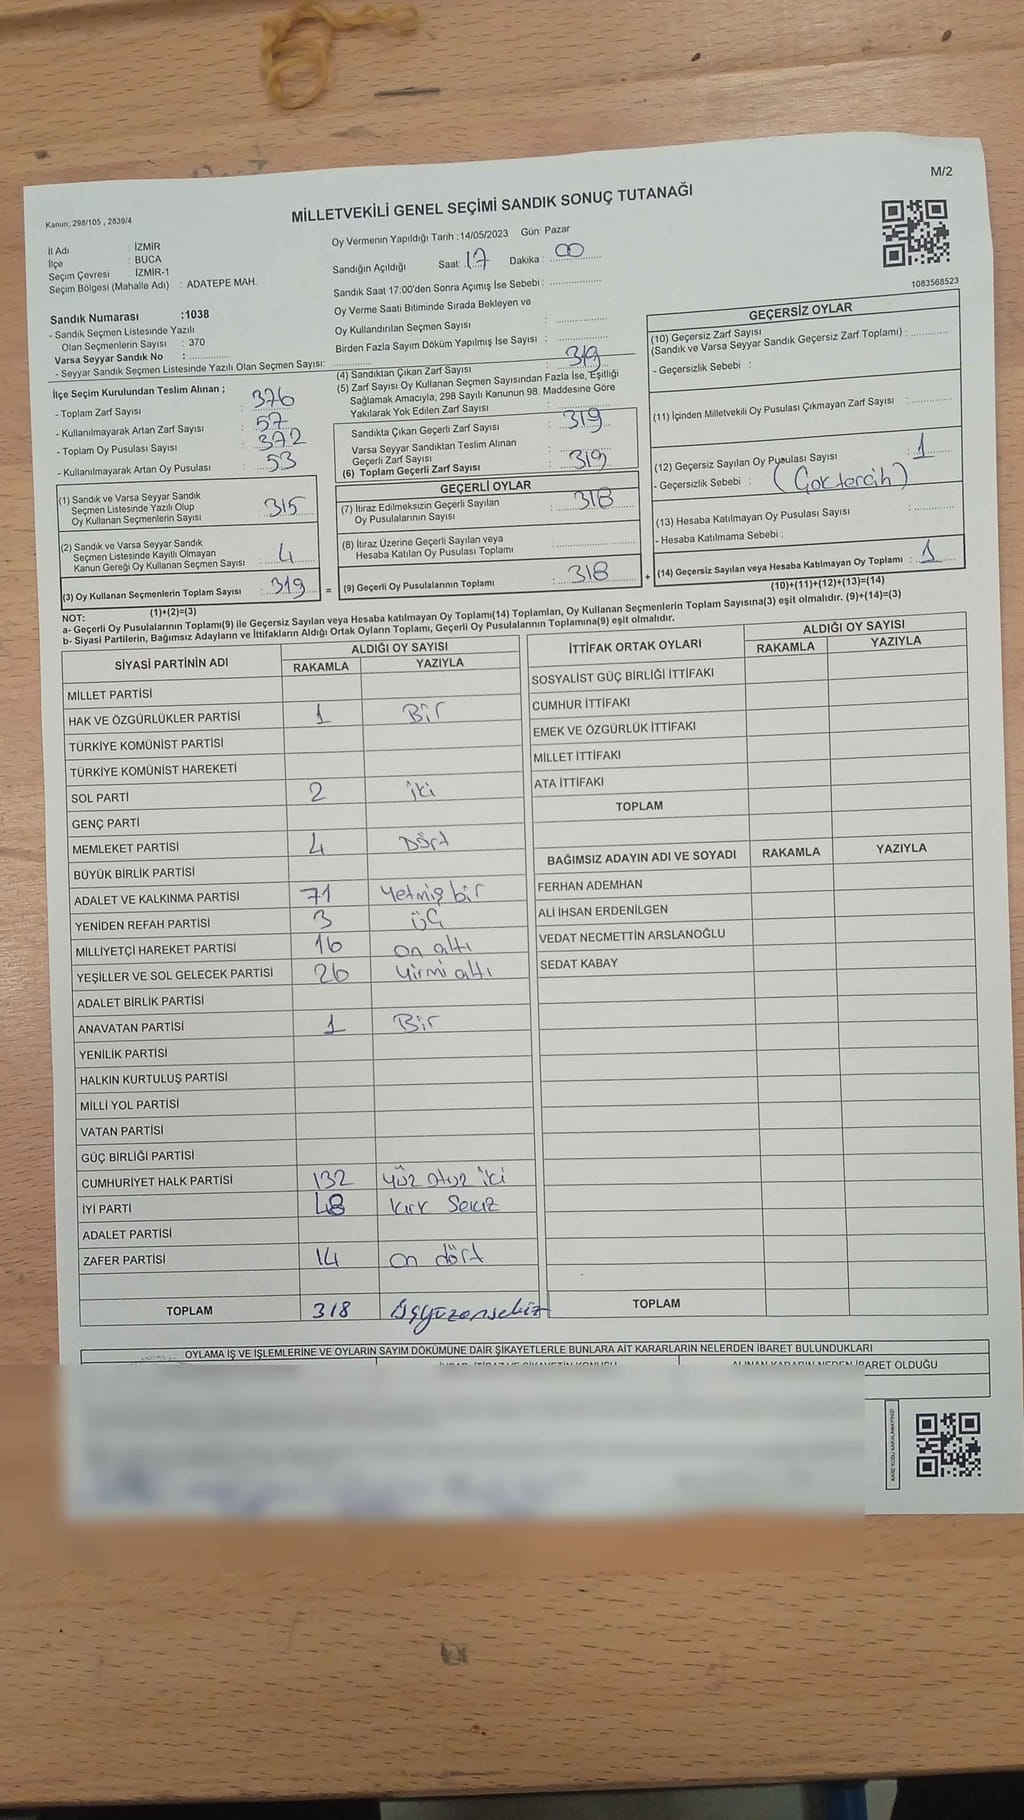 M/2
Kanun; 298/105 , 2839/4
MİLLETVEKİLİ GENEL SEÇİMİ SANDIK SONUÇ TUTANAĞI
İl Adı : İZMİR
İlçe : BUCA
Seçim Çevresi : İZMİR-1
Seçim Bölgesi (Mahalle Adı) : ADATEPE MAH.
Sandık Numarası :1038
- Sandık Seçmen Listesinde Yazılı
Olan Seçmenlerin Sayısı : 370
Varsa Seyyar Sandık No : ..............
- Seyyar Sandık Seçmen Listesinde Yazılı Olan Seçmen Sayısı: ..............
Oy Vermenin Yapıldığı Tarih :14/05/2023 Gün: Pazar
Sandığın Açıldığı Saat: 17 Dakika : 00
Sandık Saat 17:00'den Sonra Açımış İse Sebebi : ..............
Oy Verme Saati Bitiminde Sırada Bekleyen ve
Oy Kullandırılan Seçmen Sayısı : ..............
Birden Fazla Sayım Döküm Yapılmış İse Sayısı : ..............
1083568523
İlçe Seçim Kurulundan Teslim Alınan ;
- Toplam Zarf Sayısı : 376
- Kullanılmayarak Artan Zarf Sayısı : 57
- Toplam Oy Pusulası Sayısı : 372
- Kullanılmayarak Artan Oy Pusulası : 53
(1) Sandık ve Varsa Seyyar Sandık
Seçmen Listesinde Yazılı Olup
Oy Kullanan Seçmenlerin Sayısı : 315
(2) Sandık ve Varsa Seyyar Sandık
Seçmen Listesinde Kayıtlı Olmayan
Kanun Gereği Oy Kullanan Seçmen Sayısı : 4
(3) Oy Kullanan Seçmenlerin Toplam Sayısı : 319
(1)+(2)=(3)
(4) Sandıktan Çıkan Zarf Sayısı : 319
(5) Zarf Sayısı Oy Kullanan Seçmen Sayısından Fazla İse, Eşitliği
Sağlamak Amacıyla; 298 Sayılı Kanunun 98. Maddesine Göre
Yakılarak Yok Edilen Zarf Sayısı : ..............
Sandıkta Çıkan Geçerli Zarf Sayısı : 319
Varsa Seyyar Sandıktan Teslim Alınan
Geçerli Zarf Sayısı : ..............
(6) Toplam Geçerli Zarf Sayısı : 319
GEÇERLİ OYLAR
(7) İtiraz Edilmeksizin Geçerli Sayılan
Oy Pusulalarının Sayısı : 318
(8) İtiraz Üzerine Geçerli Sayılan veya
Hesaba Katılan Oy Pusulası Toplamı : ..............
= (9) Geçerli Oy Pusulalarının Toplamı : 318 +
GEÇERSİZ OYLAR
(10) Geçersiz Zarf Sayısı
(Sandık ve Varsa Seyyar Sandık Geçersiz Zarf Toplamı) : ..............
- Geçersizlik Sebebi :
(11) İçinden Milletvekili Oy Pusulası Çıkmayan Zarf Sayısı : ..............
(12) Geçersiz Sayılan Oy Pusulası Sayısı : 1
- Geçersizlik Sebebi : (Çok tercih)
(13) Hesaba Katılmayan Oy Pusulası Sayısı : ..............
- Hesaba Katılmama Sebebi :
(14) Geçersiz Sayılan veya Hesaba Katılmayan Oy Toplamı : 1
(10)+(11)+(12)+(13)=(14)
NOT:
a- Geçerli Oy Pusulalarının Toplamı(9) ile Geçersiz Sayılan veya Hesaba katılmayan Oy Toplamı(14) Toplamları, Oy Kullanan Seçmenlerin Toplam Sayısına(3) eşit olmalıdır. (9)+(14)=(3)
b- Siyasi Partilerin, Bağımsız Adayların ve İttifakların Aldığı Ortak Oyların Toplamı, Geçerli Oy Pusulalarının Toplamına(9) eşit olmalıdır.
SİYASİ PARTİNİN ADI ALDIĞI OY SAYISI
RAKAMLA YAZIYLA
MİLLET PARTİSİ
HAK VE ÖZGÜRLÜKLER PARTİSİ 1 Bir
TÜRKİYE KOMÜNİST PARTİSİ
TÜRKİYE KOMÜNİST HAREKETİ
SOL PARTİ 2 iki
GENÇ PARTİ
MEMLEKET PARTİSİ 4 Dört
BÜYÜK BİRLİK PARTİSİ
ADALET VE KALKINMA PARTİSİ 71 Yetmiş bir
YENİDEN REFAH PARTİSİ 3 üç
MİLLİYETÇİ HAREKET PARTİSİ 16 on altı
YEŞİLLER VE SOL GELECEK PARTİSİ 26 Yirmi altı
ADALET BİRLİK PARTİSİ
ANAVATAN PARTİSİ 1 Bir
YENİLİK PARTİSİ
HALKIN KURTULUŞ PARTİSİ
MİLLİ YOL PARTİSİ
VATAN PARTİSİ
GÜÇ BİRLİĞİ PARTİSİ
CUMHURİYET HALK PARTİSİ 132 yüz otuz iki
İYİ PARTİ 48 kırk sekiz
ADALET PARTİSİ
ZAFER PARTİSİ 14 on dört
TOPLAM 318 üçyüzonsekiz
İTTİFAK ORTAK OYLARI ALDIĞI OY SAYISI
RAKAMLA YAZIYLA
SOSYALİST GÜÇ BİRLİĞİ İTTİFAKI
CUMHUR İTTİFAKI
EMEK VE ÖZGÜRLÜK İTTİFAKI
MİLLET İTTİFAKI
ATA İTTİFAKI
TOPLAM
BAĞIMSIZ ADAYIN ADI VE SOYADI RAKAMLA YAZIYLA
FERHAN ADEMHAN
ALİ İHSAN ERDENİLGEN
VEDAT NECMETTİN ARSLANOĞLU
SEDAT KABAY
TOPLAM
OYLAMA İŞ VE İŞLEMLERİNE VE OYLARIN SAYIM DÖKÜMÜNE DAİR ŞİKAYETLERLE BUNLARA AİT KARARLARIN NELERDEN İBARET BULUNDUKLARI
ALINAN KARARIN NEDEN İBARET OLDUĞU
KARE KODU KARALAMAYINIZ!